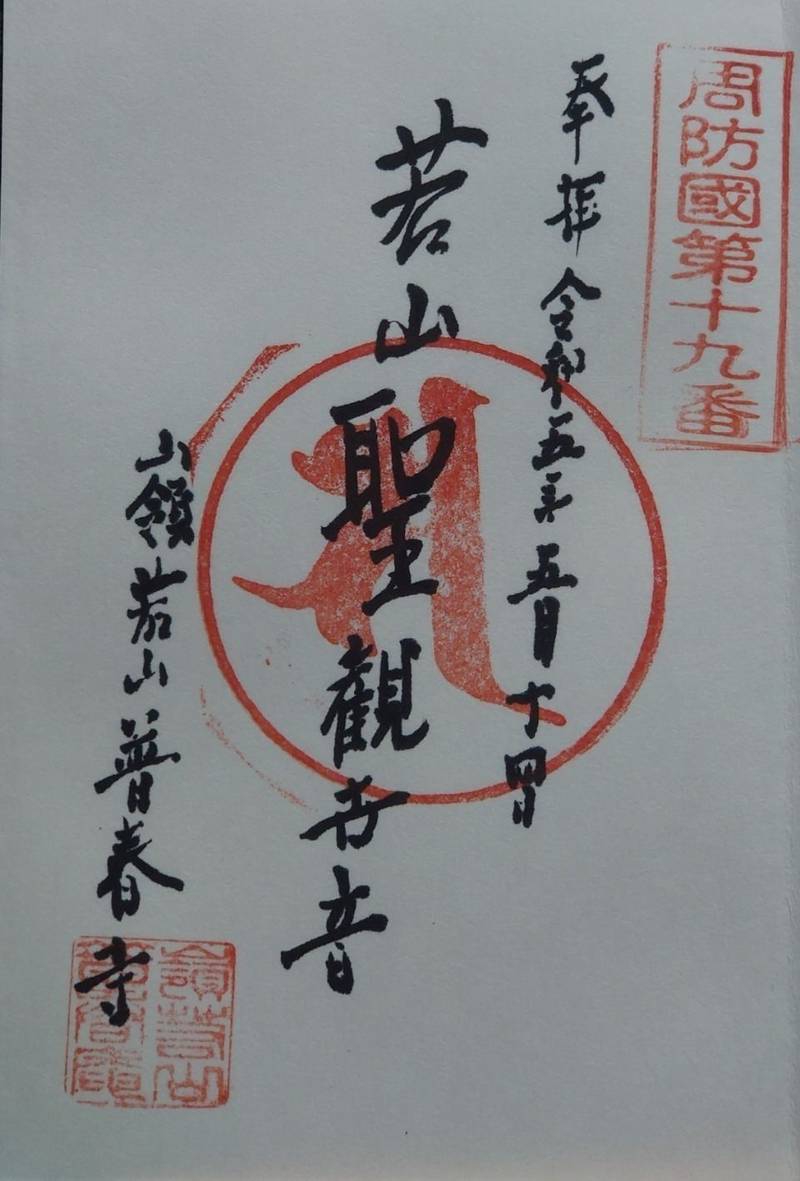 周防國第十九番
奉拝 令和五年五月十四日
若山聖觀世音
嶺若山普春寺